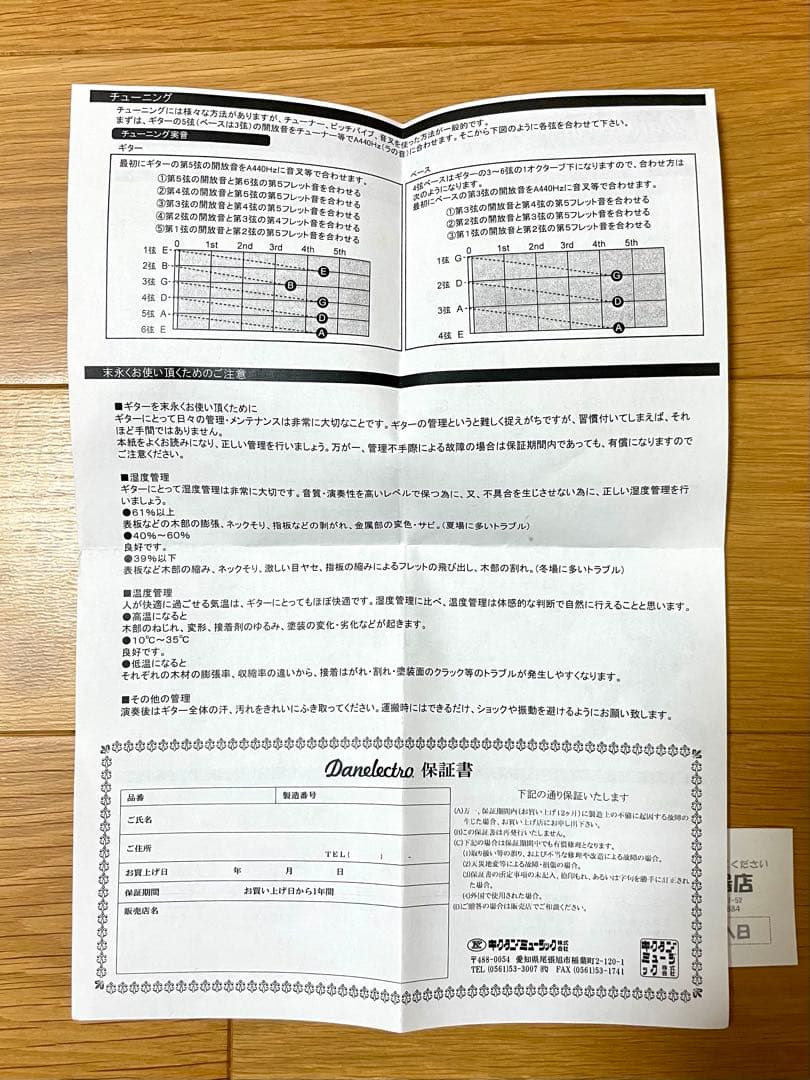 チューニング
チューニングには様々な方法がありますが、チューナー、ピッチパイプ、音叉を使った方法が一般的です。
まずは、ギターの5弦(ベースは3弦)の開放音をチューナー等でA440Hz(ラの音)に合わせます。そこから下図のように各弦を合わせて下さい。
チューニング実音
ギター
最初にギターの第5弦の開放音をA440Hzに音叉等で合わせます。
①第5弦の開放音と第6弦の第5フレット音を合わせる
②第4弦の開放音と第5弦の第5フレット音を合わせる
③第3弦の開放音と第4弦の第5フレット音を合わせる
④第2弦の開放音と第3弦の第4フレット音を合わせる
⑤第1弦の開放音と第2弦の第5フレット音を合わせる
0 1st 2nd 3rd 4th 5th
1弦 E
2弦 B E
3弦 G B
4弦 D G
5弦 A D
6弦 E A
ベース
4弦ベースはギターの3~6弦の1オクターブ下になりますので、合わせ方は
次のようになります。
最初にベースの第3弦の開放音をA440Hzに音叉等で合わせます。
①第3弦の開放音と第4弦の第5フレット音を合わせる
②第2弦の開放音と第3弦の第5フレット音を合わせる
③第1弦の開放音と第2弦の第5フレット音を合わせる
0 1st 2nd 3rd 4th 5th
1弦 G
2弦 D G
3弦 A D
4弦 E A
末永くお使い頂くためのご注意
■ギターを末永くお使い頂くために
ギターにとって日々の管理・メンテナンスは非常に大切なことです。ギターの管理というと難しく捉えがちですが、習慣付いてしまえば、それ
ほど手間ではありません。
本紙をよくお読みになり、正しい管理を行いましょう。万が一、管理不手際による故障の場合は保証期間内であっても、有償になりますので
ご注意ください。
■湿度管理
ギターにとって湿度管理は非常に大切です。音質・演奏性を高いレベルで保つ為に、又、不具合を生じさせない為に、正しい湿度管理を行
いましょう。
●61%以上
表板などの木部の膨張、ネックそり、指板などの剝がれ、金属部の変色・サビ。(夏場に多いトラブル)
●40%~60%
良好です。
●39%以下
表板など木部の縮み、ネックそり、激しい目ヤセ、指板の縮みによるフレットの飛び出し、木部の割れ。(冬場に多いトラブル)
■温度管理
人が快適に過ごせる気温は、ギターにとってもほぼ快適です。湿度管理に比べ、温度管理は体感的な判断で自然に行えることと思います。
●高温になると
木部のねじれ、変形、接着剤のゆるみ、塗装の変化・劣化などが起きます。
●10℃~35℃
良好です。
●低温になると
それぞれの木材の膨張率、収縮率の違いから、接着はがれ・割れ・塗装面のクラック等のトラブルが発生しやすくなります。
■その他の管理
演奏後はギター全体の汗、汚れをきれいにふき取ってください。運搬時にはできるだけ、ショックや振動を避けるようにお願い致します。
Danelectro 保証書
品番 製造番号
ご氏名
ご住所
TEL( ) -
お買上げ日 年 月 日
保証期間 お買い上げ日から1年間
販売店名
下記の通り保証いたします
(A)万一、保証期間内(お買い上げ12ヶ月)に製造上の不備に起因する故障の
生じた場合、お買い上げ店にお申し出下さい。
(B)この保証書は再発行いたしません。
(C)下記の場合は保証期間中でも有償修理となります。
(1)取り扱い等の誤り、および不当な修理や改造による故障の場合。
(2)天災地変等による故障・損傷の場合。
(3)保証書の所定事項の未記入、捺印もれ、あるいは字句を勝手に訂正され
た場合。
(4)外国で使用された場合。
(D)ご贈答の場合は販売店でご相談ください。
キクタニミュージック株式会社
〒488-0054 愛知県尾張旭市稲葉町2-120-1
TEL (0561)53-3007 ㈹ FAX (0561)53-1741
キクタニミュージック株式会社
ください
店
-52